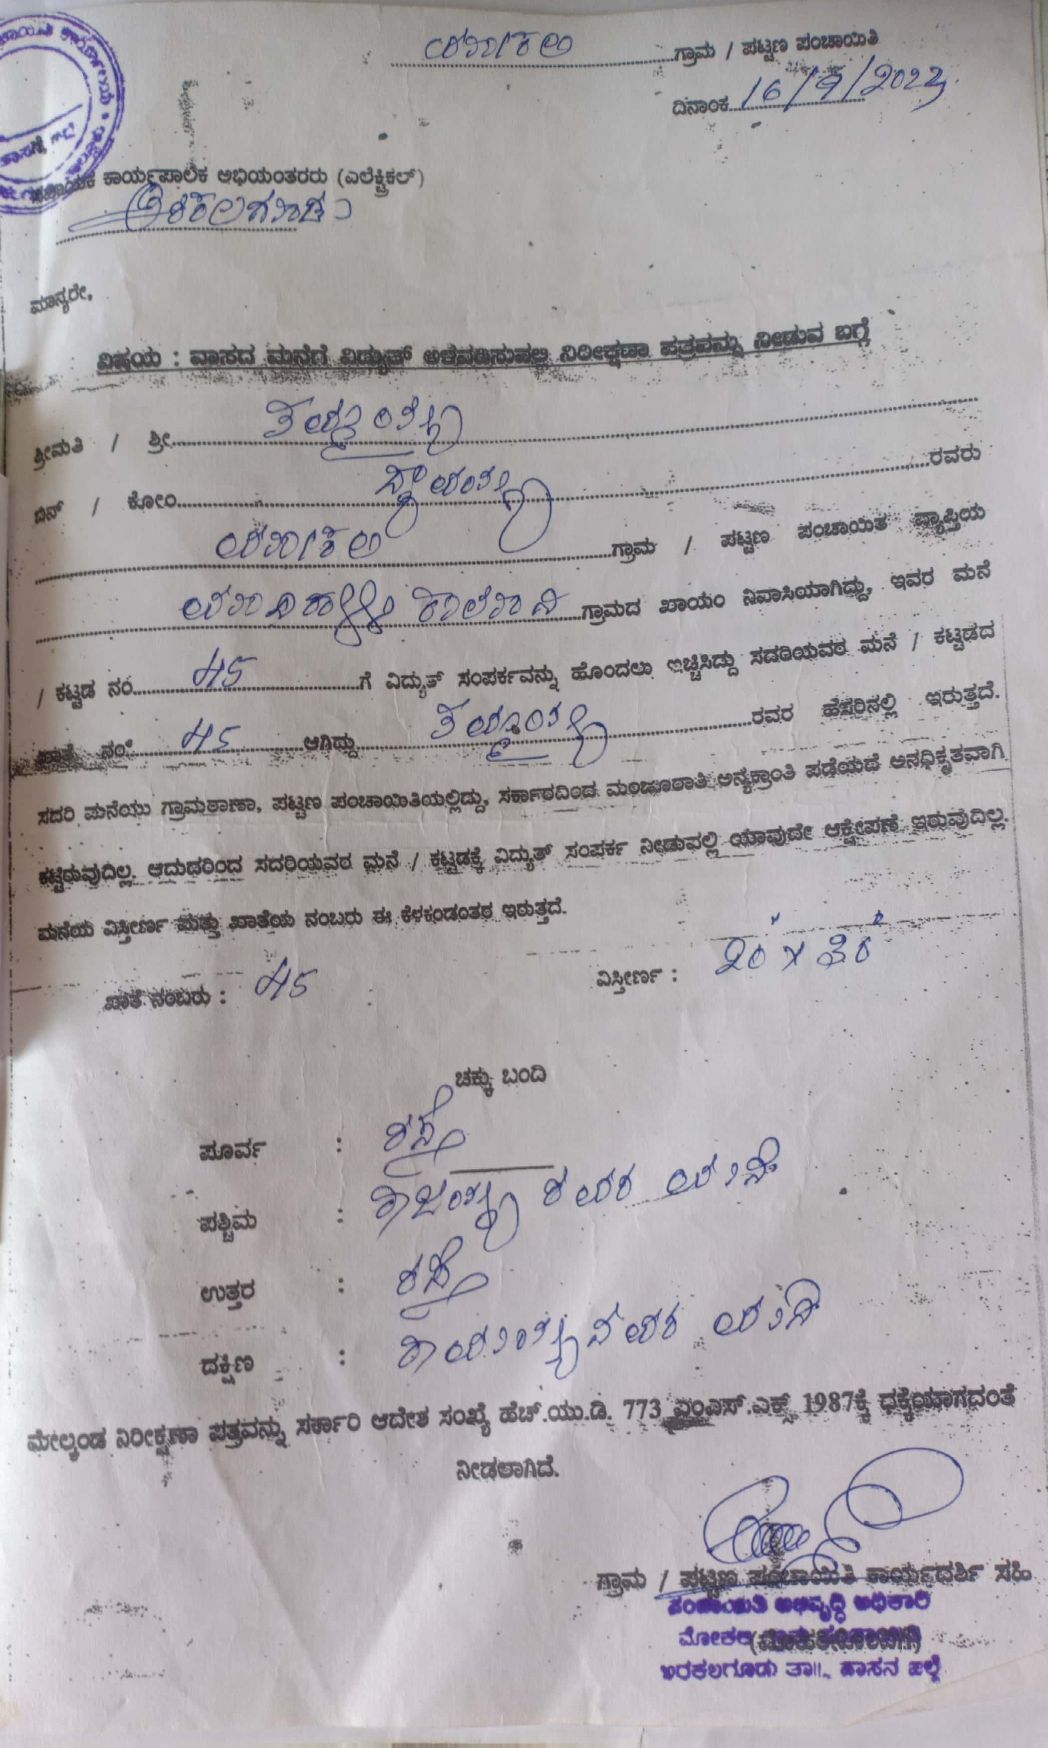 ಮೋಕಲಿ ಗ್ರಾಮ / ಪಟ್ಟಣ ಪಂಚಾಯಿತಿ
ದಿನಾಂಕ 16/9/2023
ಸಹಾಯಕ ಕಾರ್ಯಪಾಲಕ ಅಭಿಯಂತರರು (ಎಲೆಕ್ಟ್ರಿಕಲ್)
ಅರಕಲಗೂಡು
ಮಾನ್ಯರೇ,
ವಿಷಯ : ವಾಸದ ಮನೆಗೆ ವಿದ್ಯುತ್ ಅಳವಡಿಸುವಲ್ಲಿ ನಿರೀಕ್ಷಣಾ ಪತ್ರವನ್ನು ನೀಡುವ ಬಗ್ಗೆ
ಶ್ರೀಮತಿ / ಶ್ರೀ
ಬಿನ್ / ಕೋಂ ರವರು
ಮೋಕಲಿ ಗ್ರಾಮ / ಪಟ್ಟಣ ಪಂಚಾಯಿತ ವ್ಯಾಪ್ತಿಯ
ಗ್ರಾಮದ ಖಾಯಂ ನಿವಾಸಿಯಾಗಿದ್ದು, ಇವರ ಮನೆ
/ ಕಟ್ಟಡ ನಂ 45 ಗೆ ವಿದ್ಯುತ್ ಸಂಪರ್ಕವನ್ನು ಹೊಂದಲು ಇಚ್ಚಿಸಿದ್ದು ಸದರಿಯವರ ಮನೆ / ಕಟ್ಟಡದ
ಖಾತೆ ನಂ 45 ಆಗಿದ್ದು ರವರ ಹೆಸರಿನಲ್ಲಿ ಇರುತ್ತದೆ.
ಸದರಿ ಮನೆಯು ಗ್ರಾಮಠಾಣಾ, ಪಟ್ಟಣ ಪಂಚಾಯಿತಿಯಲ್ಲಿದ್ದು, ಸರ್ಕಾರದಿಂದ ಮಂಜೂರಾತಿ ಅನ್ಯಕ್ರಾಂತಿ ಪಡೆಯದೆ ಅನಧಿಕೃತವಾಗಿ
ಕಟ್ಟಿರುವುದಿಲ್ಲ. ಆದುದರಿಂದ ಸದರಿಯವರ ಮನೆ / ಕಟ್ಟಡಕ್ಕೆ ವಿದ್ಯುತ್ ಸಂಪರ್ಕ ನೀಡುವಲ್ಲಿ ಯಾವುದೇ ಆಕ್ಷೇಪಣೆ ಇರುವುದಿಲ್ಲ.
ಮನೆಯ ವಿಸ್ತೀರ್ಣ ಮತ್ತು ಖಾತೆಯ ನಂಬರು ಈ ಕೆಳಕಂಡಂತೆ ಇರುತ್ತದೆ.
ಖಾತೆ ನಂಬರು : 45 ವಿಸ್ತೀರ್ಣ : 20' x 30'
ಚಕ್ಕು ಬಂದಿ
ಪೂರ್ವ : ರಸ್ತೆ
ಪಶ್ಚಿಮ : ರವರ ಮನೆ
ಉತ್ತರ : ರಸ್ತೆ
ದಕ್ಷಿಣ : ಮನೆ
ಮೇಲ್ಕಂಡ ನಿರೀಕ್ಷಣಾ ಪತ್ರವನ್ನು ಸರ್ಕಾರಿ ಆದೇಶ ಸಂಖ್ಯೆ ಹೆಚ್.ಯು.ಡಿ. 773 ಎಂ.ಎಸ್.ಎಕ್ಸ್ 1987ಕ್ಕೆ ಧಕ್ಕೆಯಾಗದಂತೆ
ನೀಡಲಾಗಿದೆ.
ಗ್ರಾಮ / ಪಟ್ಟಣ ಪಂಚಾಯಿತಿ ಕಾರ್ಯದರ್ಶಿ ಸಹಿ
ಪಂಚಾಯಿತಿ ಅಭಿವೃದ್ಧಿ ಅಧಿಕಾರಿ
ಮೋಕಲಿ
ಅರಕಲಗೂಡು ತಾ||, ಹಾಸನ ಜಿಲ್ಲೆ